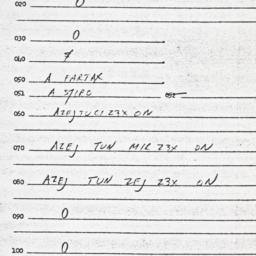 020 0
030 0
040 7
050 A FARTAK
051 A STIRG 052
060 AZEJTUCIZ3X ON
070 AZEJ TUN MIR Z3X ON
080 AZEJ TUN ZEJ Z3X ON
090 0
100 0